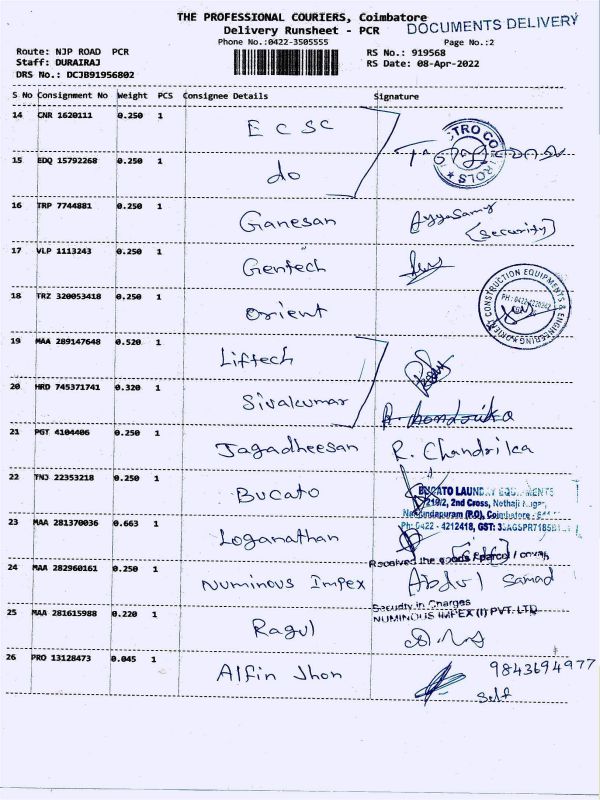 THE PROFESSIONAL COURIERS, Coimbatore
Delivery Runsheet - PCR
DOCUMENTS DELIVERY
Phone No.:0422-3505555
Page No.:2
Route: NJP ROAD PCR
RS No.: 919568
Staff: DURAIRAJ
RS Date: 08-Apr-2022
DRS No.: DCJB91956802
S No Consignment No Weight PCS Consignee Details Signature
14 CNR 1620111 0.250 1 ECSC
15 EDQ 15792268 0.250 1 do
TRO CO
ROLS
16 TRP 7744881 0.250 1 Ganesan Ayyasamy
(Security)
17 VLP 1113243 0.250 1 Gentech
18 TRZ 320053418 0.250 1 Orient
ORIENT CONSTRUCTION EQUIPMENTS & ENGINEERING
19 MAA 289147648 0.520 1 Liftech
20 HRD 745371741 0.320 1 Sivakumar
21 PGT 4104406 0.250 1 Jagadheesan R. Chandrika
22 TNJ 22353218 0.250 1 Bucato
BUCATO LAUNDRY EQUIPMENTS
219/2, 2nd Cross, Nethaji Nagar,
Nanjundapuram (P.O), Coimbatore
Ph: 0422 - 4212418, GST:
23 MAA 281370036 0.663 1 Loganathan (Self)
Received the goods / parcel
24 MAA 282960161 0.250 1 Numinous Impex Abdul Samad
Security in Charges
NUMINOUS IMPEX (I) PVT. LTD
25 MAA 281615988 0.220 1 Ragul
26 PRO 13128473 0.045 1 Alfin Jhon 9843694977
Self